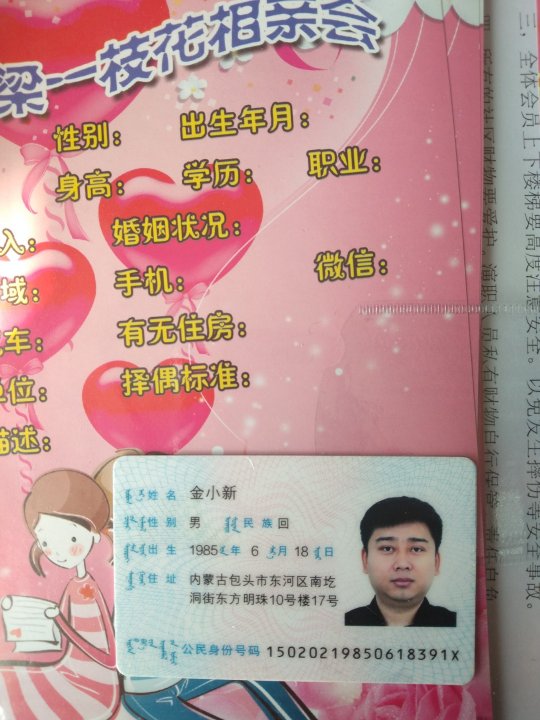 梁一枝花相亲会
性别：
出生年月：
身高：
学历：
职业：
入：
婚姻状况：
域：
手机：
微信：
车：
有无住房：
位：
择偶标准：
描述：
姓名 金小新
性别 男 民族 回
出生 1985年 6月 18日
住址 内蒙古包头市东河区南圪
洞街东方明珠10号楼17号
公民身份号码 15020219850618391X
三，全体会员上下楼梯要高度注意安全。以免发生摔伤等安全事故。
社区财物要爱护，演职人员私有财物自行保管